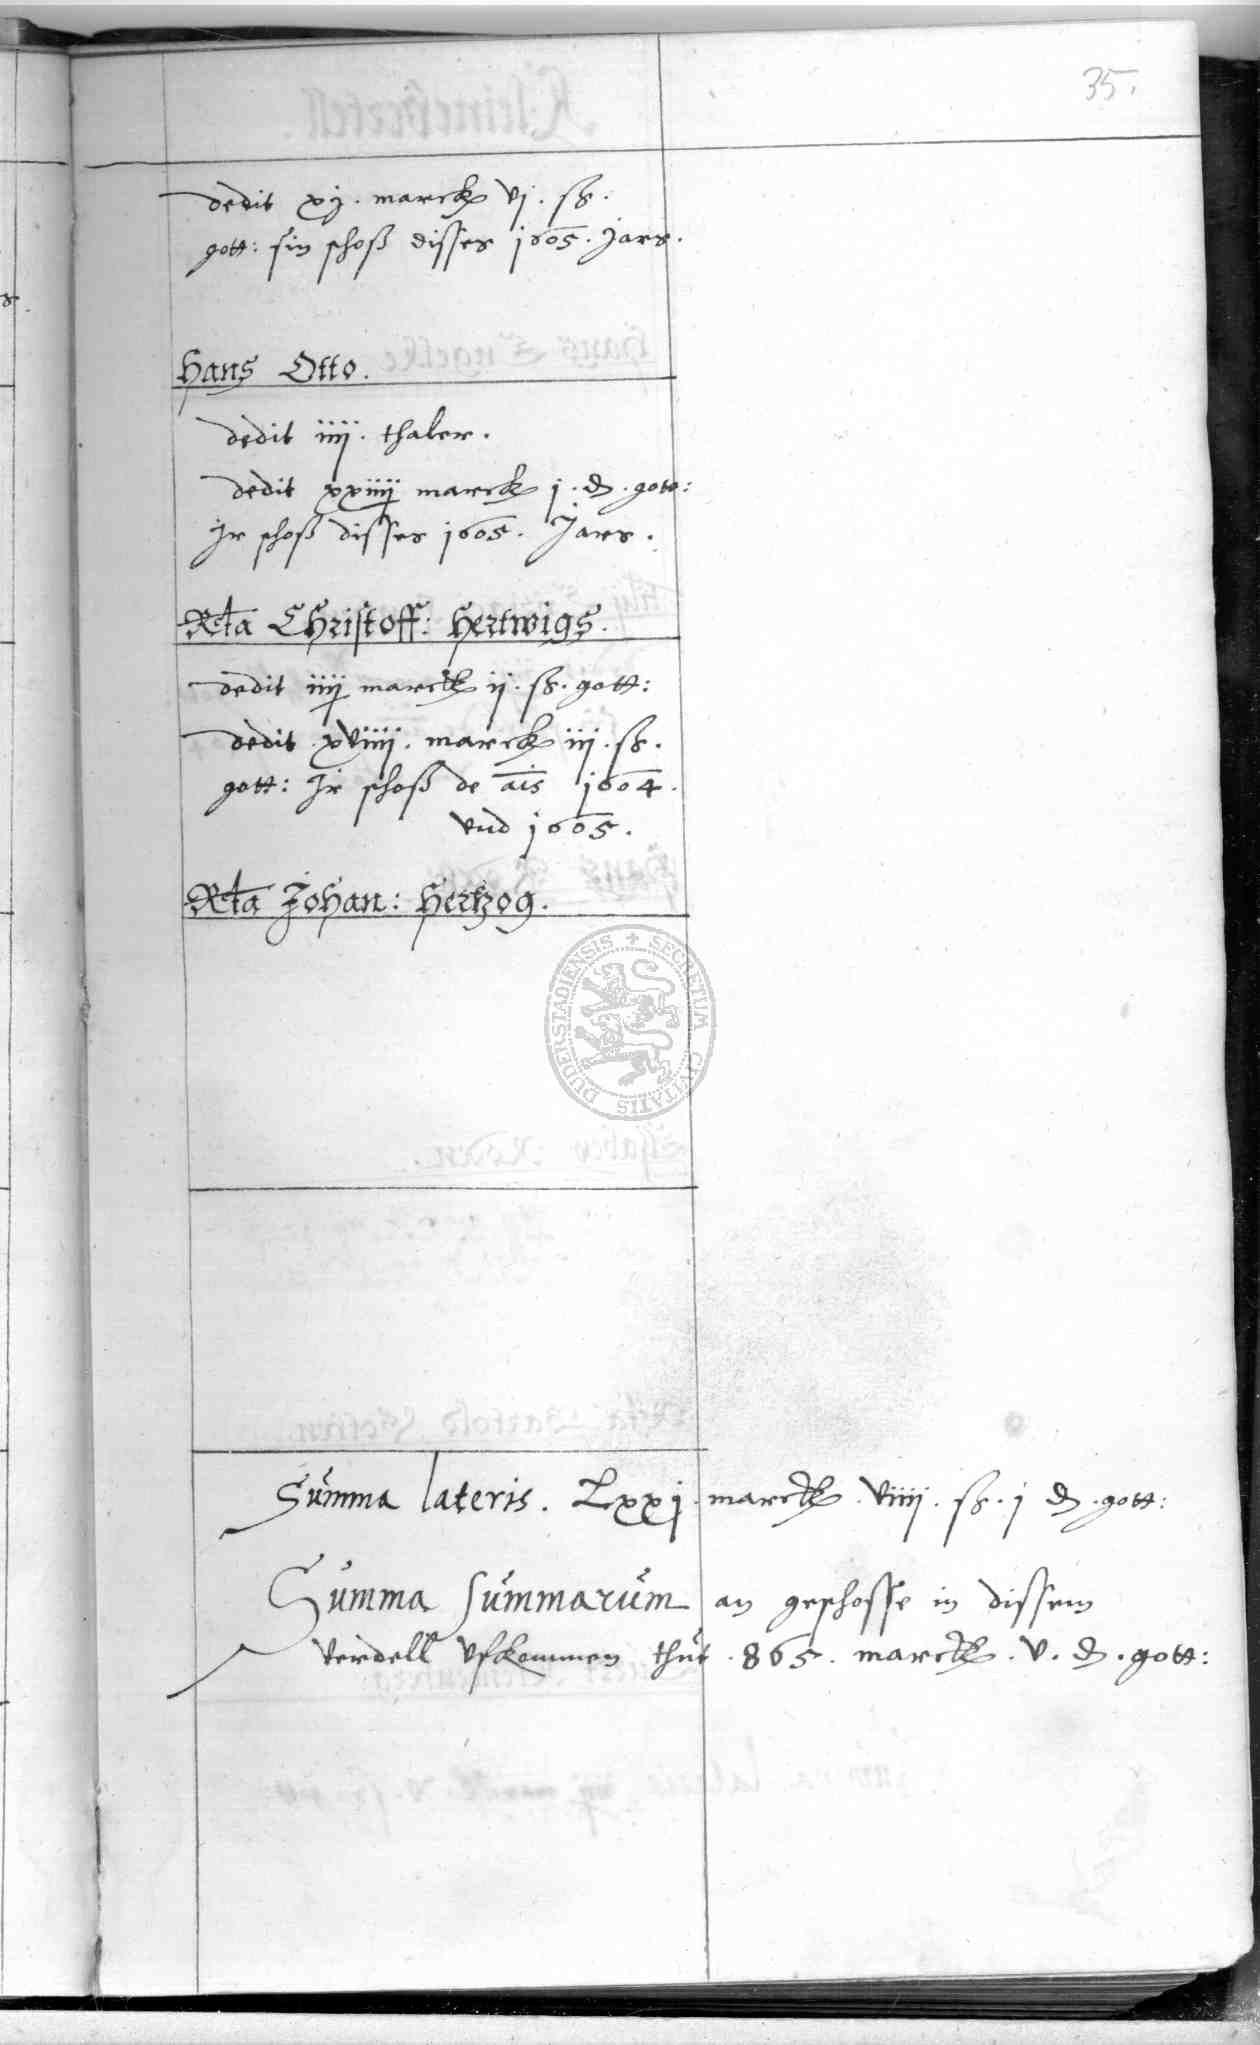 35.
dedit xj. marck vj. ß.
gott: sin schoß disses 1605. Jars.
Hans Otto.
dedit iiij. thaler.
dedit xxiiij marck j. ₰. gott:
Jr schoß disses 1605. Jars.
Rta Christoff: Hertwigs.
dedit iiij marck ij. ß. gott:
dedit xviiij. marck iij. ß.
gott: Jr schoß de ais 1604.
vnd 1605.
Rta Johan: Hertzog.
DUDERSTADIENSIS + SECRETUM CIVITATIS
Summa lateris. Lxxj. marck. viiij. ß. j ₰. gott:
Summa Summarum an geschosse in dissem
verdell vfkommen thut. 865. marck. v. ₰. gott: